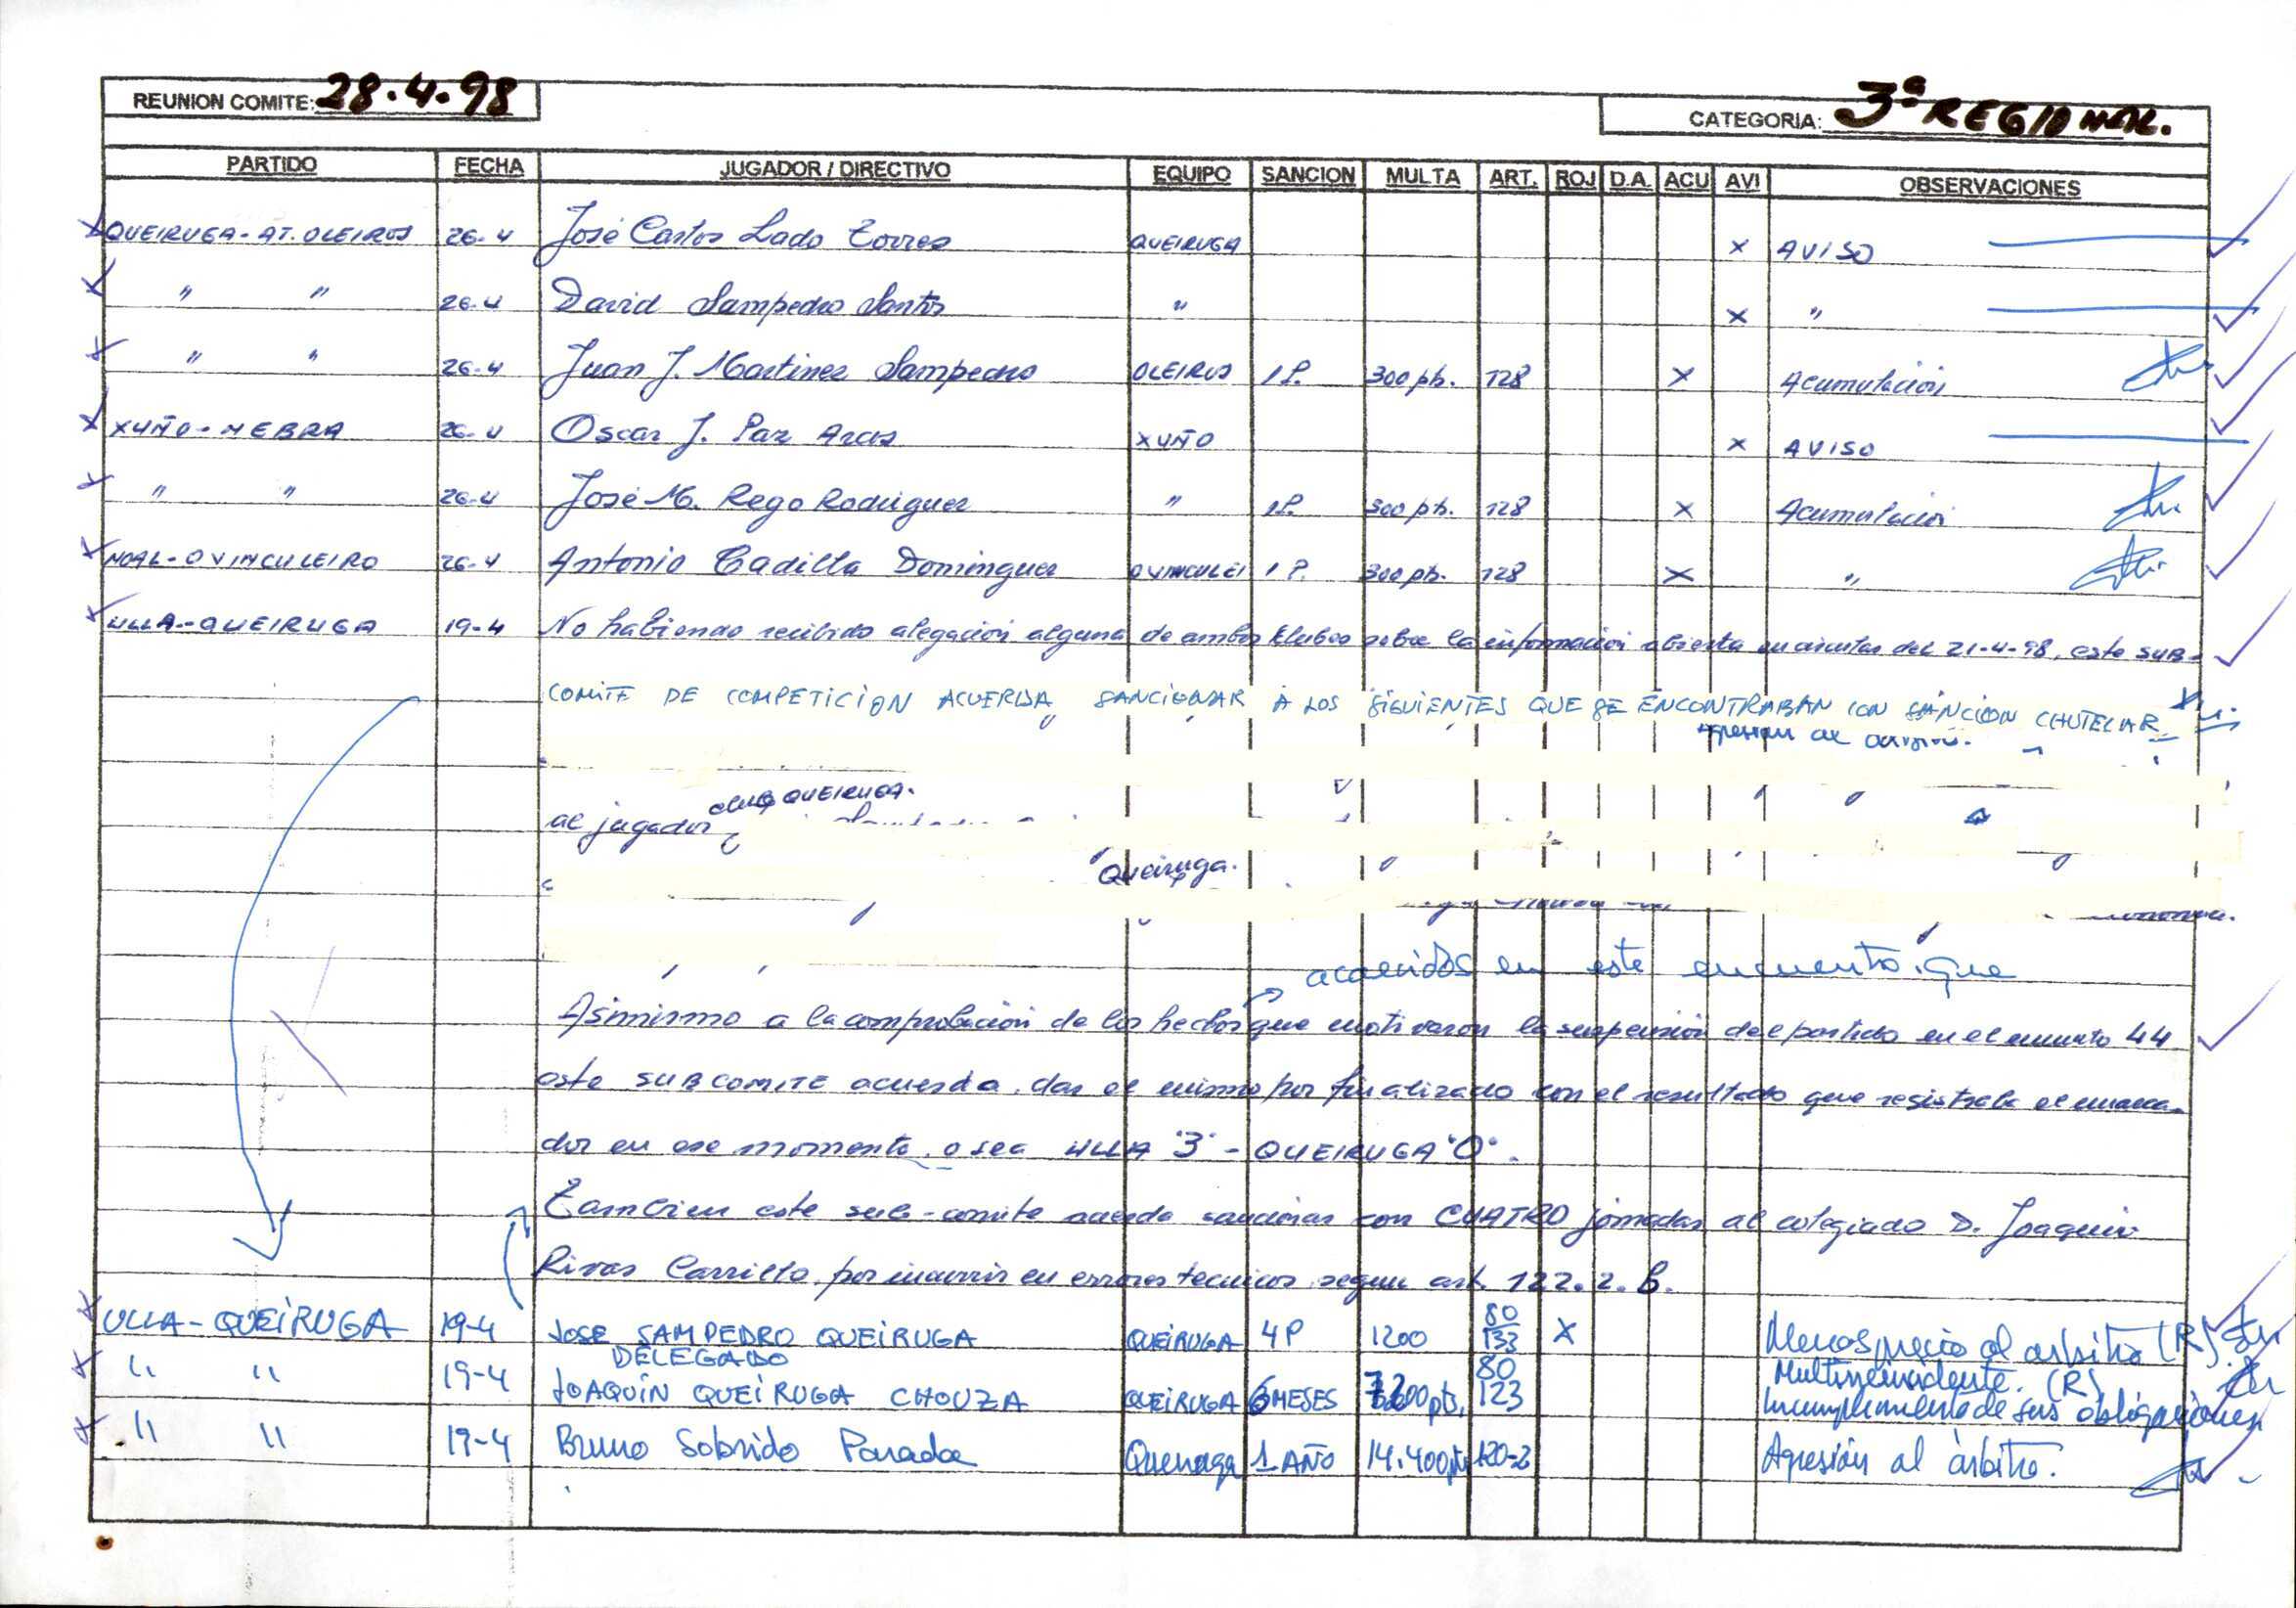 REUNION COMITE: 28.4.98
CATEGORIA: 3ª REGIONAL.
PARTIDO FECHA JUGADOR / DIRECTIVO EQUIPO SANCION MULTA ART. ROJ D.A. ACU AVI OBSERVACIONES
QUEIRUGA-AT.OLEIROS 26-4 José Carlos Lado Torres QUEIRUGA x AVISO
" " 26-4 David Sampedro Santos " x "
" " 26-4 Juan J. Martinez Sampedro OLEIROS 1P. 300 pts. 128 x Acumulación
XUÑO-NEBRA 26-4 Oscar J. Paz Arcos XUÑO x AVISO
" " 26-4 José M. Rego Rodriguez " 1P. 300 pts. 128 x Acumulación
NOAL-OVINCULEIRO 26-4 Antonio Cadilla Dominguez OVINCULEI 1P. 300 pts. 128 x "
ULLA-QUEIRUGA 19-4 No habiendo recibido alegación alguna de ambos klubes sobre la información abierta en circular del 21-4-98, este SUB-
COMITE DE COMPETICION ACUERDA SANCIONAR A LOS SIGUIENTES QUE SE ENCONTRABAN CON SANCION CAUTELAR
Agresion al
al jugador club QUEIRUGA.
Queiruga.
acaecidos en este encuentro, que
Asimismo a la comprobación de los hechos que motivaron la suspensión del partido en el minuto 44
este SUBCOMITE acuerda, dar el mismo por finalizado con el resultado que registraba el marca-
dor en ese momento, o sea ULLA "3" - QUEIRUGA "0".
Tambien este sub-comite acuerda sancionar con CUATRO jornadas al colegiado D. Joaquin
Rivas Carrillo, por incurrir en errores tecnicos, segun art. 122.2.B.
ULLA-QUEIRUGA 19-4 JOSE SAMPEDRO QUEIRUGA QUEIRUGA 4P 1200 80 133 X Menosprecio al arbitro (R)
DELEGADO
" " 19-4 JOAQUÍN QUEIRUGA CHOUZA QUEIRUGA 6 MESES 7200 pts, 80 123 Multirreincidente. (R)
Incumplimiento de sus obligaciones
" " 19-4 Bruno Sobrido Parada Queiruga 1 AÑO 14.400 pts 120-2 Agresión al árbitro.